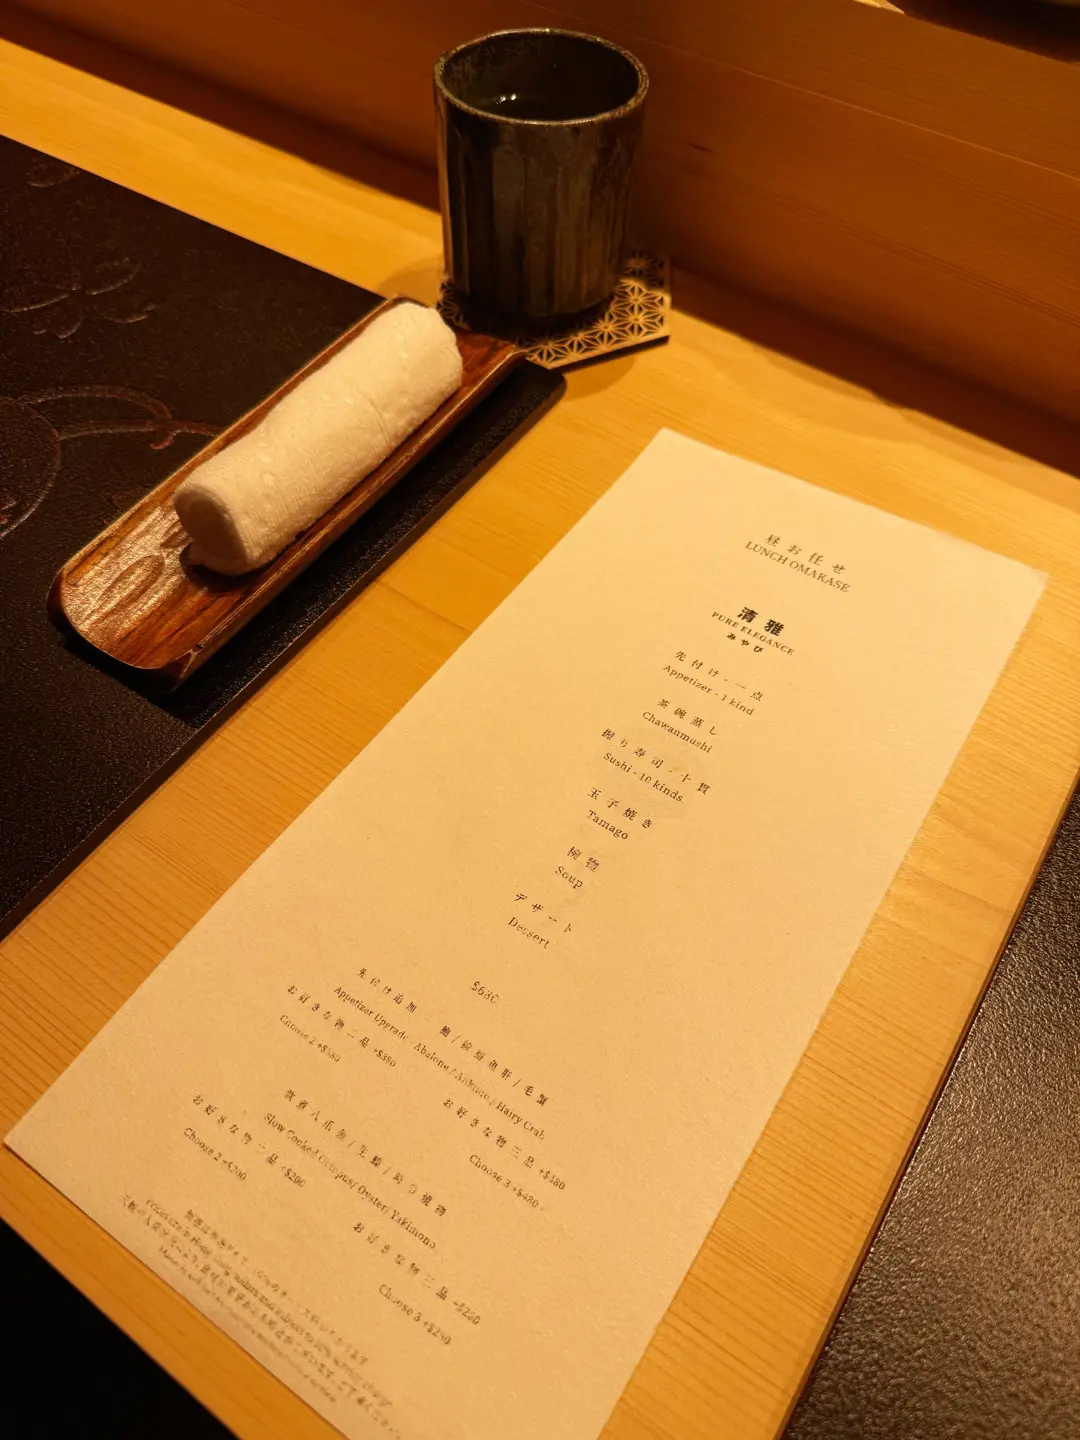 昼お任せ
LUNCH OMAKASE
清雅
PURE ELEGANCE
みやび
先付け - 一点
Appetizer - 1 kind
茶碗蒸し
Chawanmushi
握り寿司 - 十貫
Sushi - 10 kinds
玉子焼き
Tamago
椀物
Soup
デザート
Dessert
$680
先付け追加 - 鮑 / 鮟鱇魚肝 / 毛蟹
Appetizer Upgrade - Abalone / Ankimo / Hairy Crab
お好きな物二品 +$380
お好きな物三品 +$480
Choose 2 +$380
Choose 3 +$480
煮八爪魚 / 生蠔 / 焼物
Slow Cooked Octopus / Oyster / Yakimono
お好きな物二品 +$200
お好きな物三品 +$250
Choose 2 +$200
Choose 3 +$250